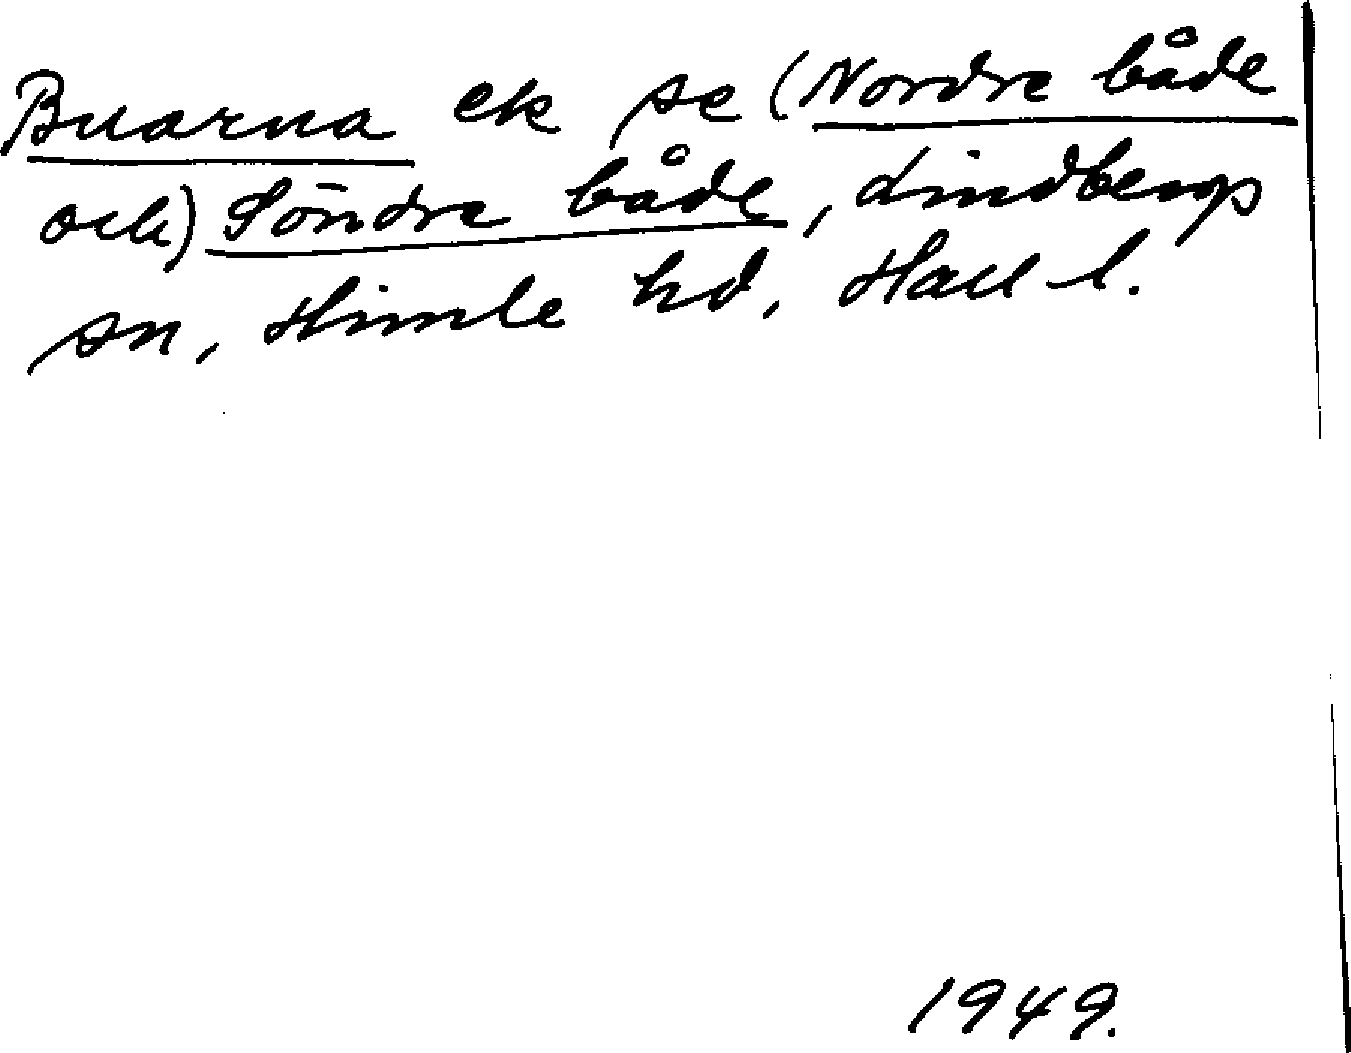 Buarna ek se (Nordre både
och) Söndre både, Lindbergs
sn, Himle hd, Hall l.
1949.